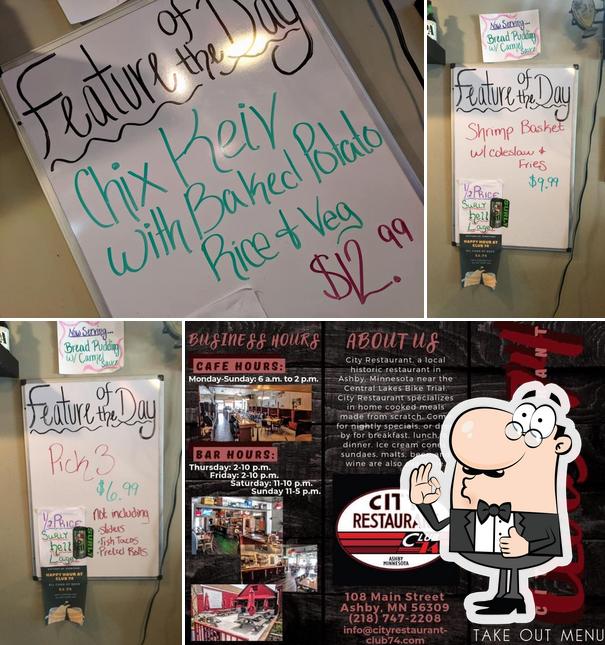 Feature of the Day
Chix Keiv
with Baked Potato
Rice + Veg
$12.99
Now Serving...
Bread Pudding
w/ Carmel
Sauce
Feature of the Day
Shrimp Basket
w/ coleslaw +
Fries
$9.99
1/2 PRICE
Surly
hell
Lager
SURLY
HAPPY HOUR AT
CLUB 74
Now Serving...
Bread Pudding
w/ Carmel
Sauce
Feature of the Day
Pick 3
$6.99
Not including
-sliders
-Fish Tacos
-Pretzel Rolls
1/2 PRICE
Surly
hell
Lager
SURLY
HAPPY HOUR AT
CLUB 74
BUSINESS HOURS
CAFE HOURS:
Monday-Sunday: 6 a.m. to 2 p.m.
BAR HOURS:
Thursday: 2-10 p.m.
Friday: 2-10 p.m.
Saturday: 11-10 p.m.
Sunday 11-5 p.m.
ABOUT US
City Restaurant, a local
historic restaurant in
Ashby, Minnesota near the
Central Lakes Bike Trial.
City Restaurant specializes
in home cooked meals
made from scratch. Com
for nightly specials, or d
by for breakfast, lunch,
dinner. Ice cream con
sundaes, malts, beer
wine are also
CIT
RESTAURA
ASHBY
MINNESOTA
108 Main Street
Ashby, MN 56309
(218) 747-2208
info@cityrestaurant-
club74.com
TAKE OUT MENU